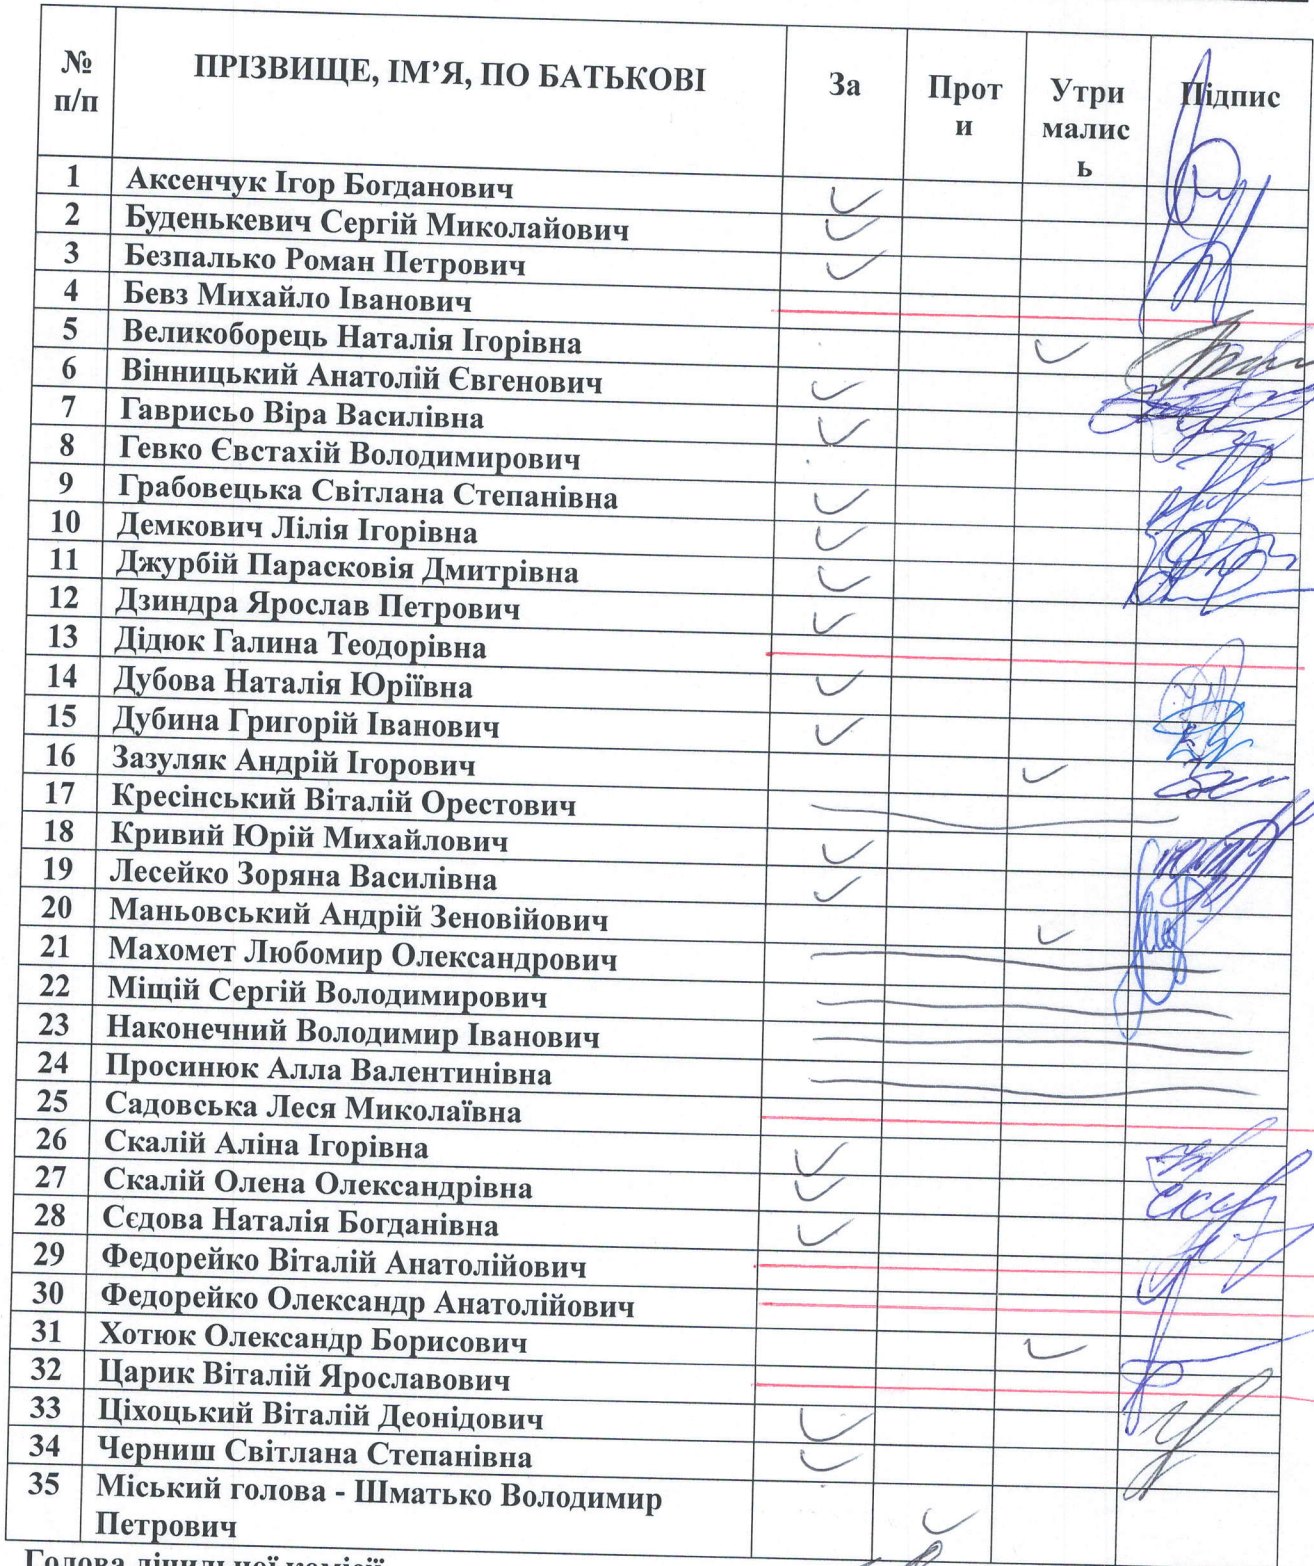 № п/п ПРІЗВИЩЕ, ІМ’Я, ПО БАТЬКОВІ За Прот и Утри малис ь Підпис
1 Аксенчук Ігор Богданович
2 Буденькевич Сергій Миколайович
3 Безпалько Роман Петрович
4 Бевз Михайло Іванович
5 Великоборець Наталія Ігорівна
6 Вінницький Анатолій Євгенович
7 Гаврисьо Віра Василівна
8 Гевко Євстахій Володимирович
9 Грабовецька Світлана Степанівна
10 Демкович Лілія Ігорівна
11 Джурбій Парасковія Дмитрівна
12 Дзиндра Ярослав Петрович
13 Дідюк Галина Теодорівна
14 Дубова Наталія Юріївна
15 Дубина Григорій Іванович
16 Зазуляк Андрій Ігорович
17 Кресінський Віталій Орестович
18 Кривий Юрій Михайлович
19 Лесейко Зоряна Василівна
20 Маньовський Андрій Зеновійович
21 Махомет Любомир Олександрович
22 Міщій Сергій Володимирович
23 Наконечний Володимир Іванович
24 Просинюк Алла Валентинівна
25 Садовська Леся Миколаївна
26 Скалій Аліна Ігорівна
27 Скалій Олена Олександрівна
28 Сєдова Наталія Богданівна
29 Федорейко Віталій Анатолійович
30 Федорейко Олександр Анатолійович
31 Хотюк Олександр Борисович
32 Царик Віталій Ярославович
33 Ціхоцький Віталій Деонідович
34 Черниш Світлана Степанівна
35 Міський голова - Шматько Володимир
Петрович
Голова лічильної комісії